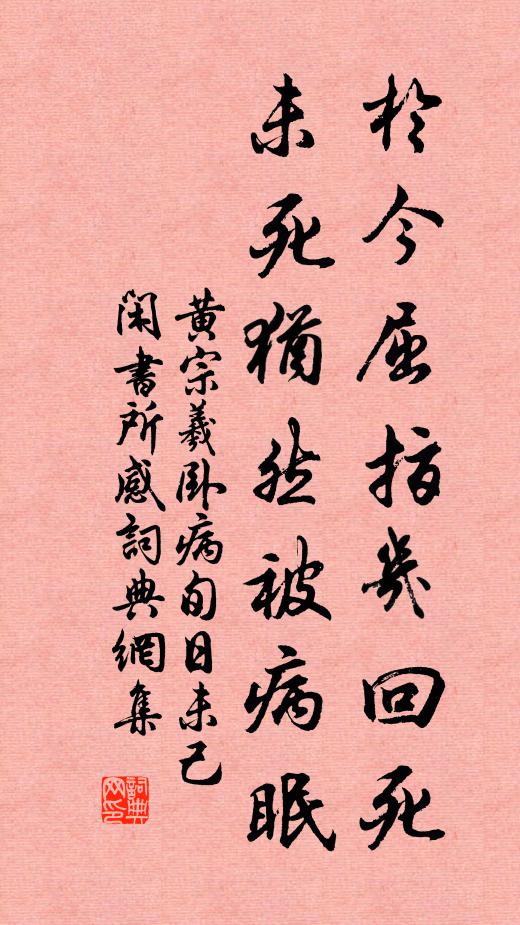 於今屈指幾回死
未死猶然被病眠
黄宗羲卧病旬日未已
閑書所感詞典網集
詞典
网印